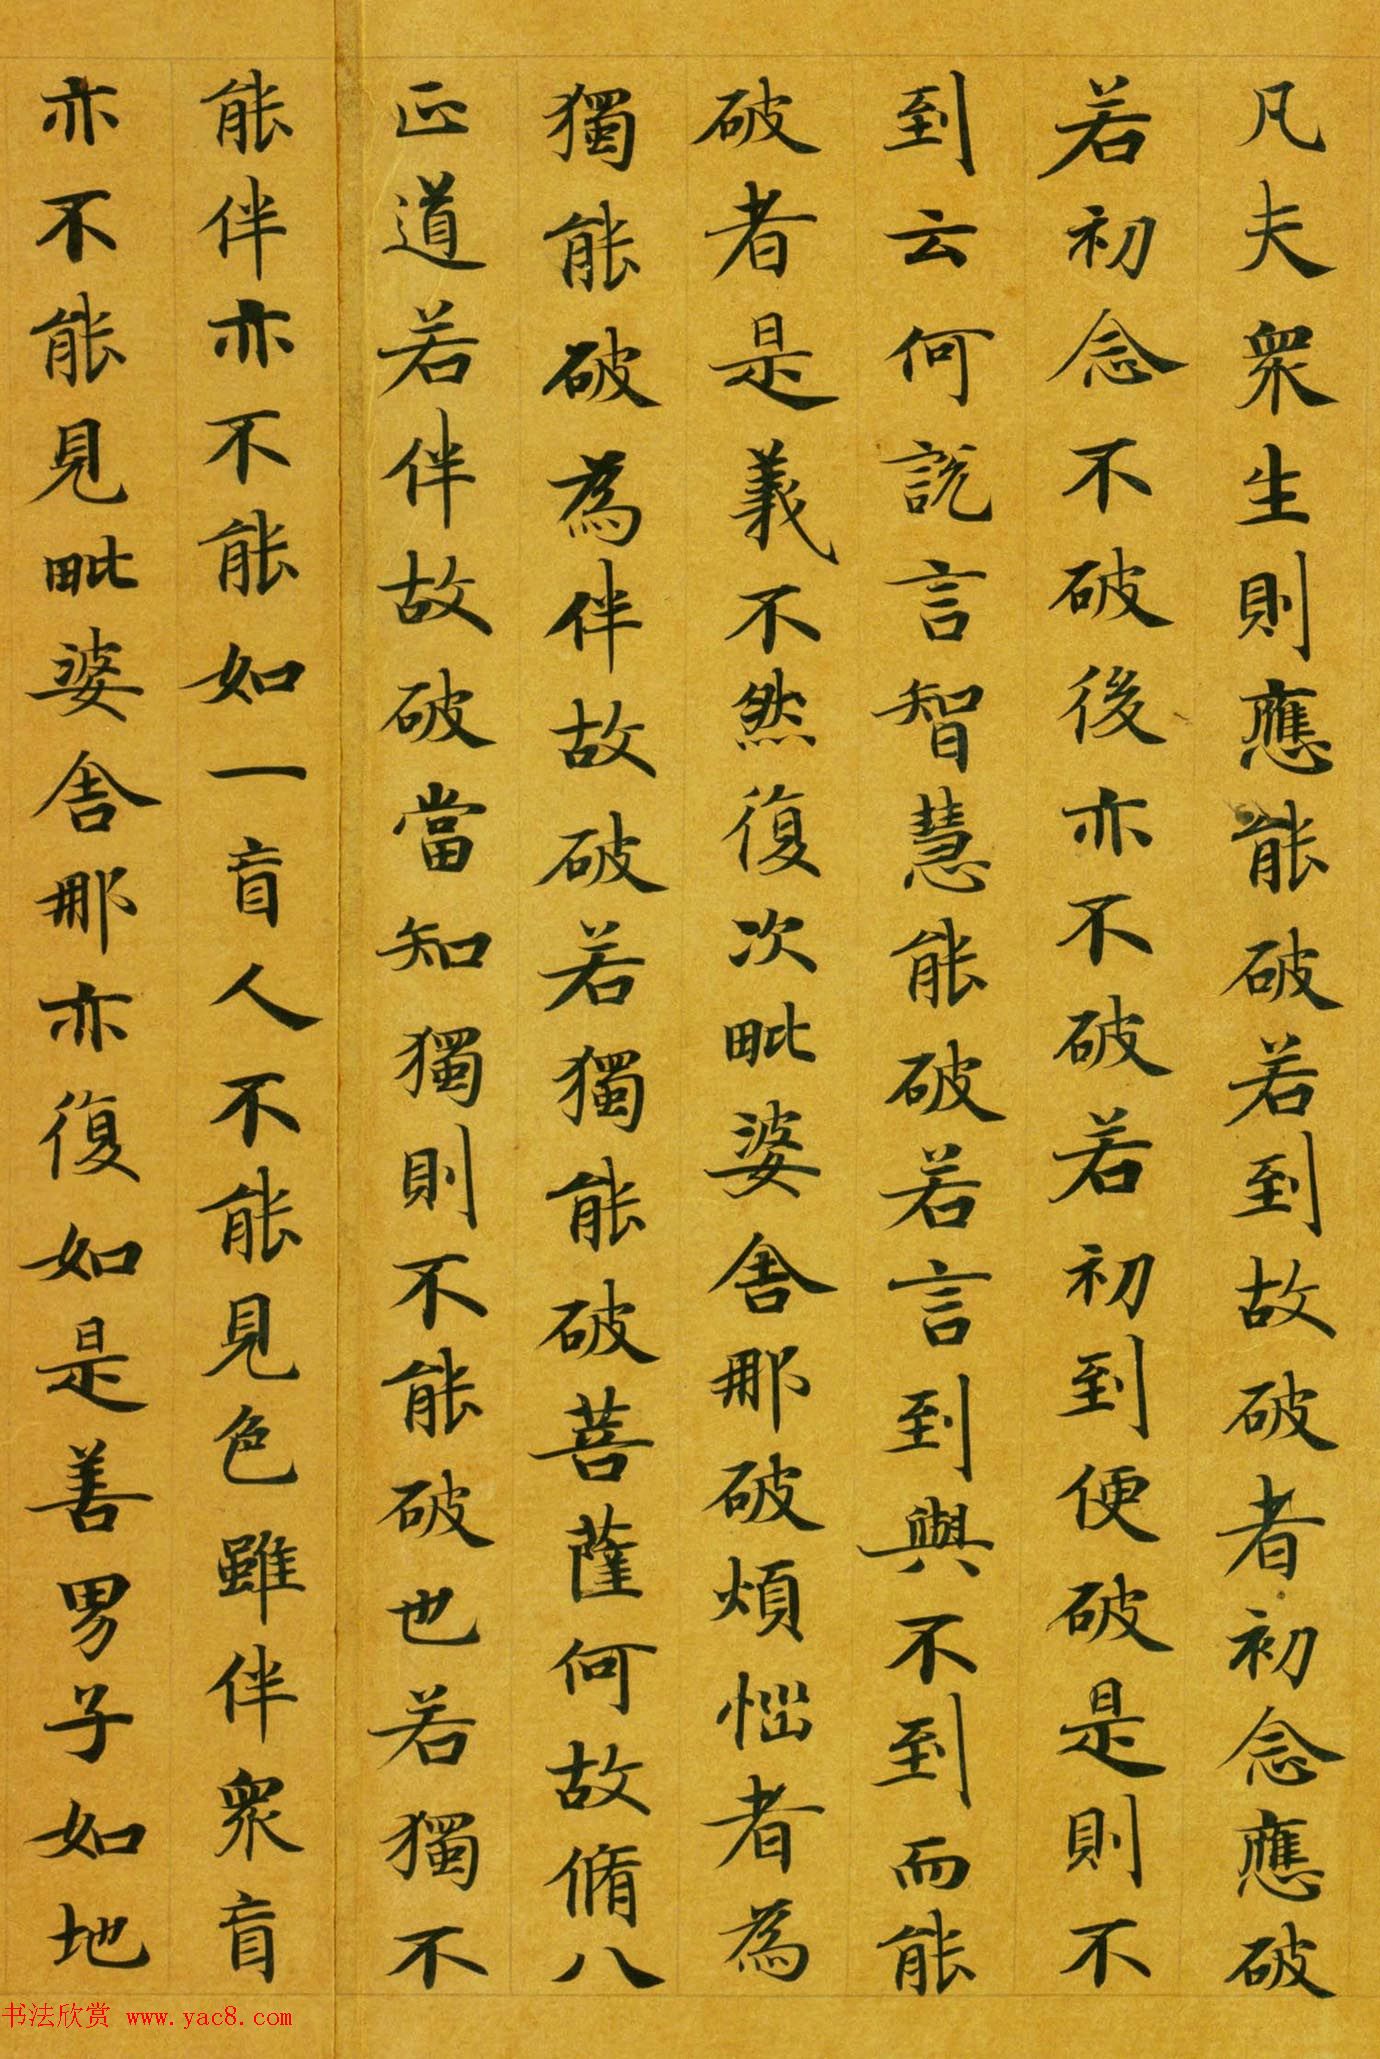 凡夫衆生則應能破若到故破者初念應破
若初念不破後亦不破若初到便破是則不
到云何說言智慧能破若言到與不到而能
破者是義不然復次毗婆舍那破煩惱者為
獨能破為伴故破若獨能破菩薩何故脩八
正道若伴故破當知獨則不能破也若獨不
能伴亦不能如一盲人不能見色雖伴衆盲
亦不能見毗婆舍那亦復如是善男子如地
书法欣赏 www.yac8.com